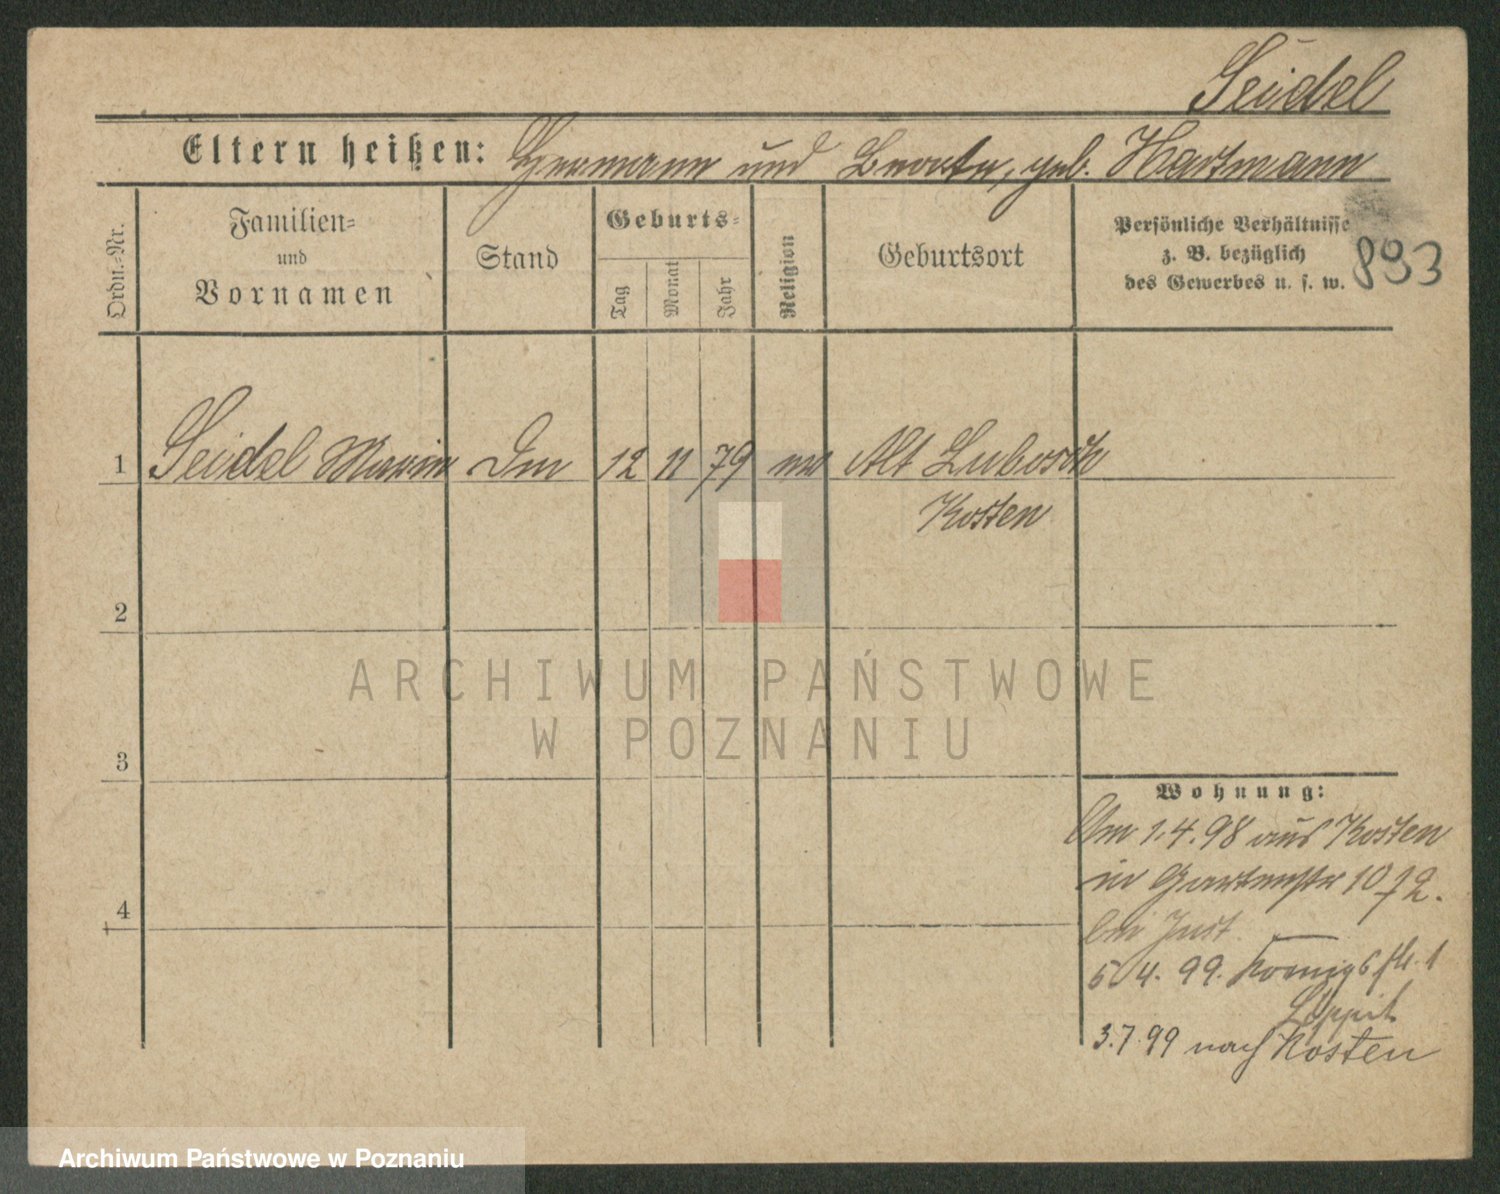 Seidel
Eltern heißen: Hermann und Beate, geb. Hartmann
Ordn.-Nr.
Familien-
und
Vornamen
Stand
Geburts-
Tag
Monat
Jahr
Religion
Geburtsort
Persönliche Verhältnisse
z. B. bezüglich
des Gewerbes u. s. w.
893
1 Seidel Maria 12 11 79 Alt Lubosch
Kosten
2
3
4
Wohnung:
Am 1.4.98 aus Kosten
in Gartenstr 10
bei Just
5 4. 99. Koenigsstr. 1
3.7.99 nach Kosten
ARCHIWUM PAŃSTWOWE
W POZNANIU
Archiwum Państwowe w Poznaniu